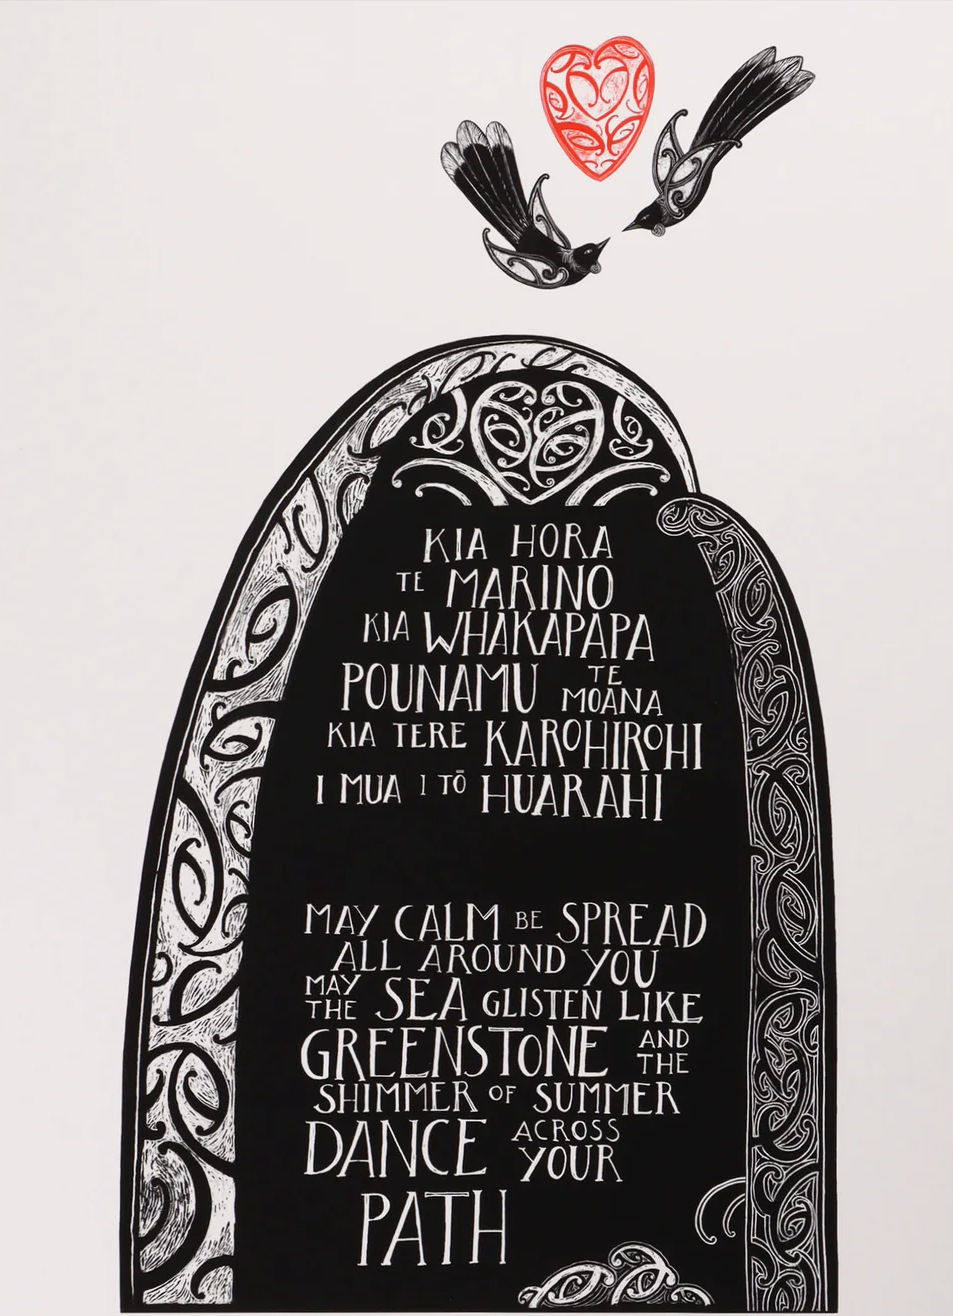 KIA HORA
TE MARINO
KIA WHAKAPAPA
POUNAMU TE MOANA
KIA TERE KAROHIROHI
I MUA I TŌ HUARAHI
MAY CALM BE SPREAD
ALL AROUND YOU
MAY THE SEA GLISTEN LIKE
GREENSTONE AND THE
SHIMMER OF SUMMER
DANCE ACROSS YOUR
PATH